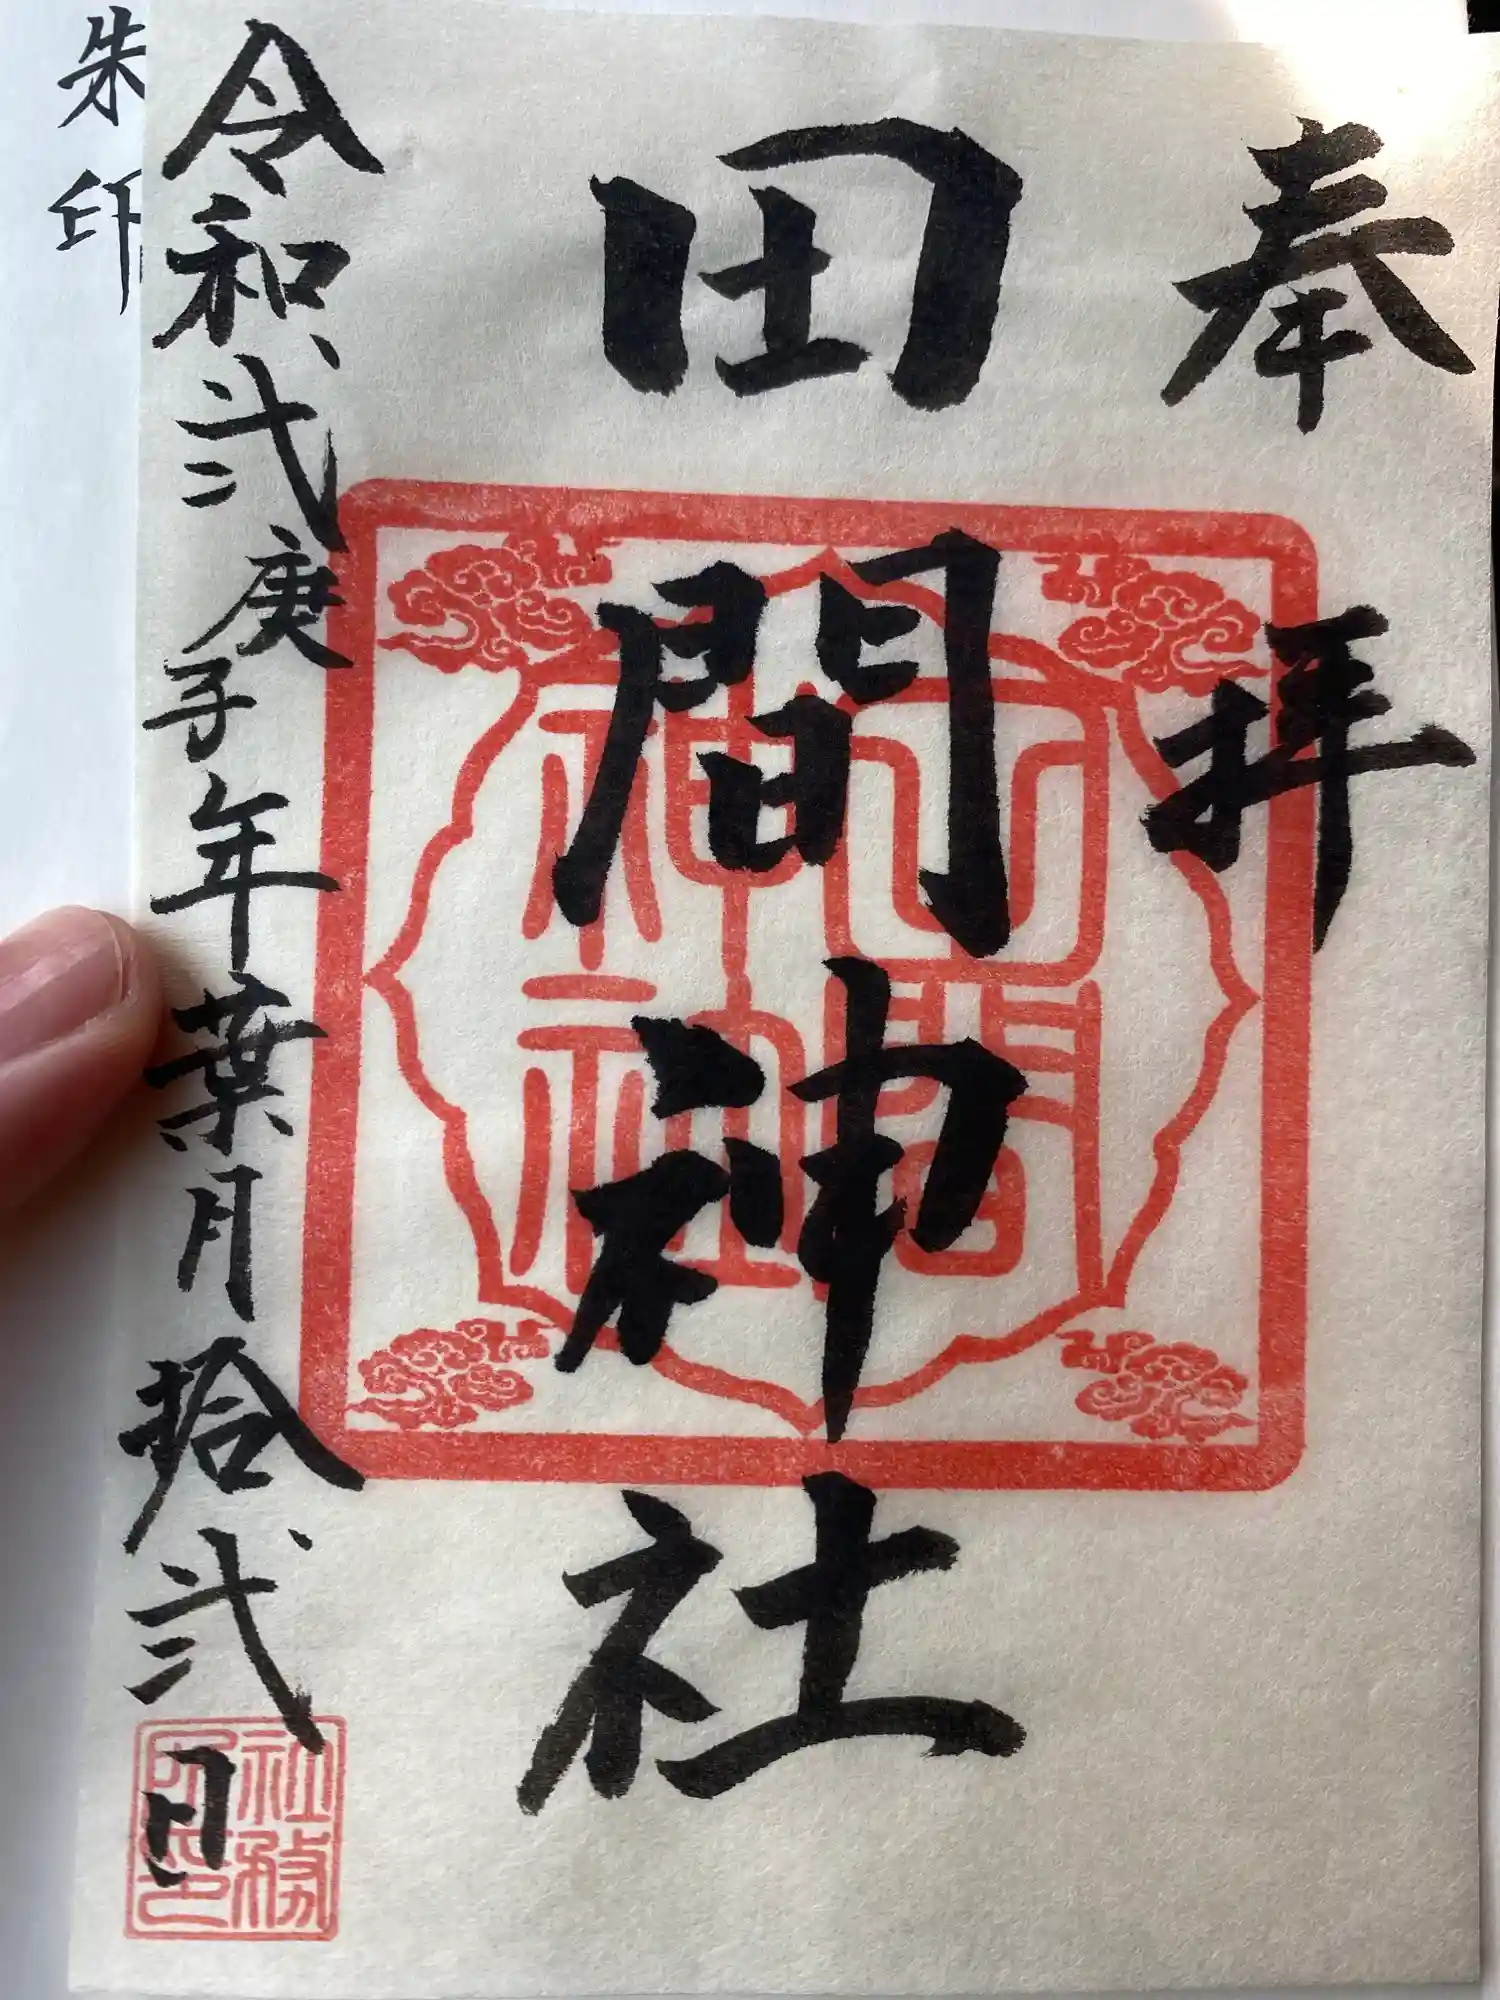 奉拝
田間神社
令和弐庚子年葉月拾弐日
朱印
神社
社務